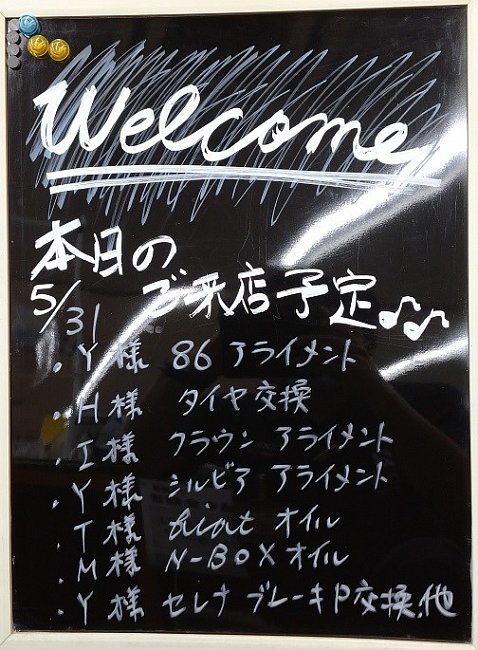 Welcome
本日の
5/31 ご来店予定♪♫
・Y様 86 アライメント
・H様 タイヤ交換
・I様 クラウン アライメント
・Y様 シルビア アライメント
・T様 オイル
・M様 N-BOX オイル
・Y様 セレナ ブレーキP交換.他